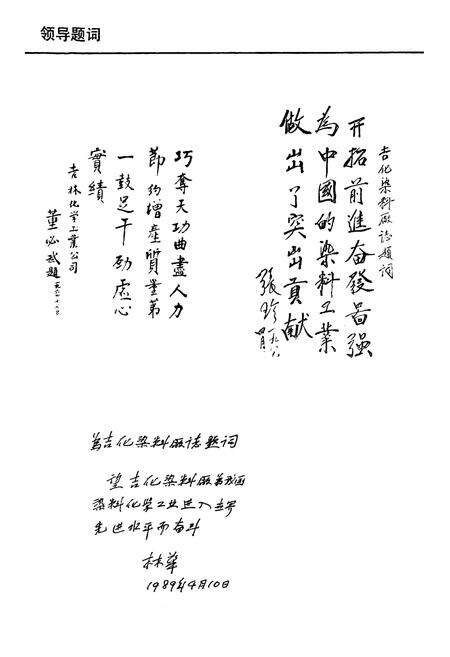 领导题词
吉化染料厂志题词
开拓前進奋發啚强
為中國的染料工業
做出了突出貢献
張珍 一九八
四月
巧奪天功曲盡人力
節约增產質量第
一鼓足干劲虚心
實績
吉林化学工業公司
董必武題
為吉化染料厰志题词
望吉化染料厰
染料化学工业进入
先进水平而奋斗
林華
1989年4月10日